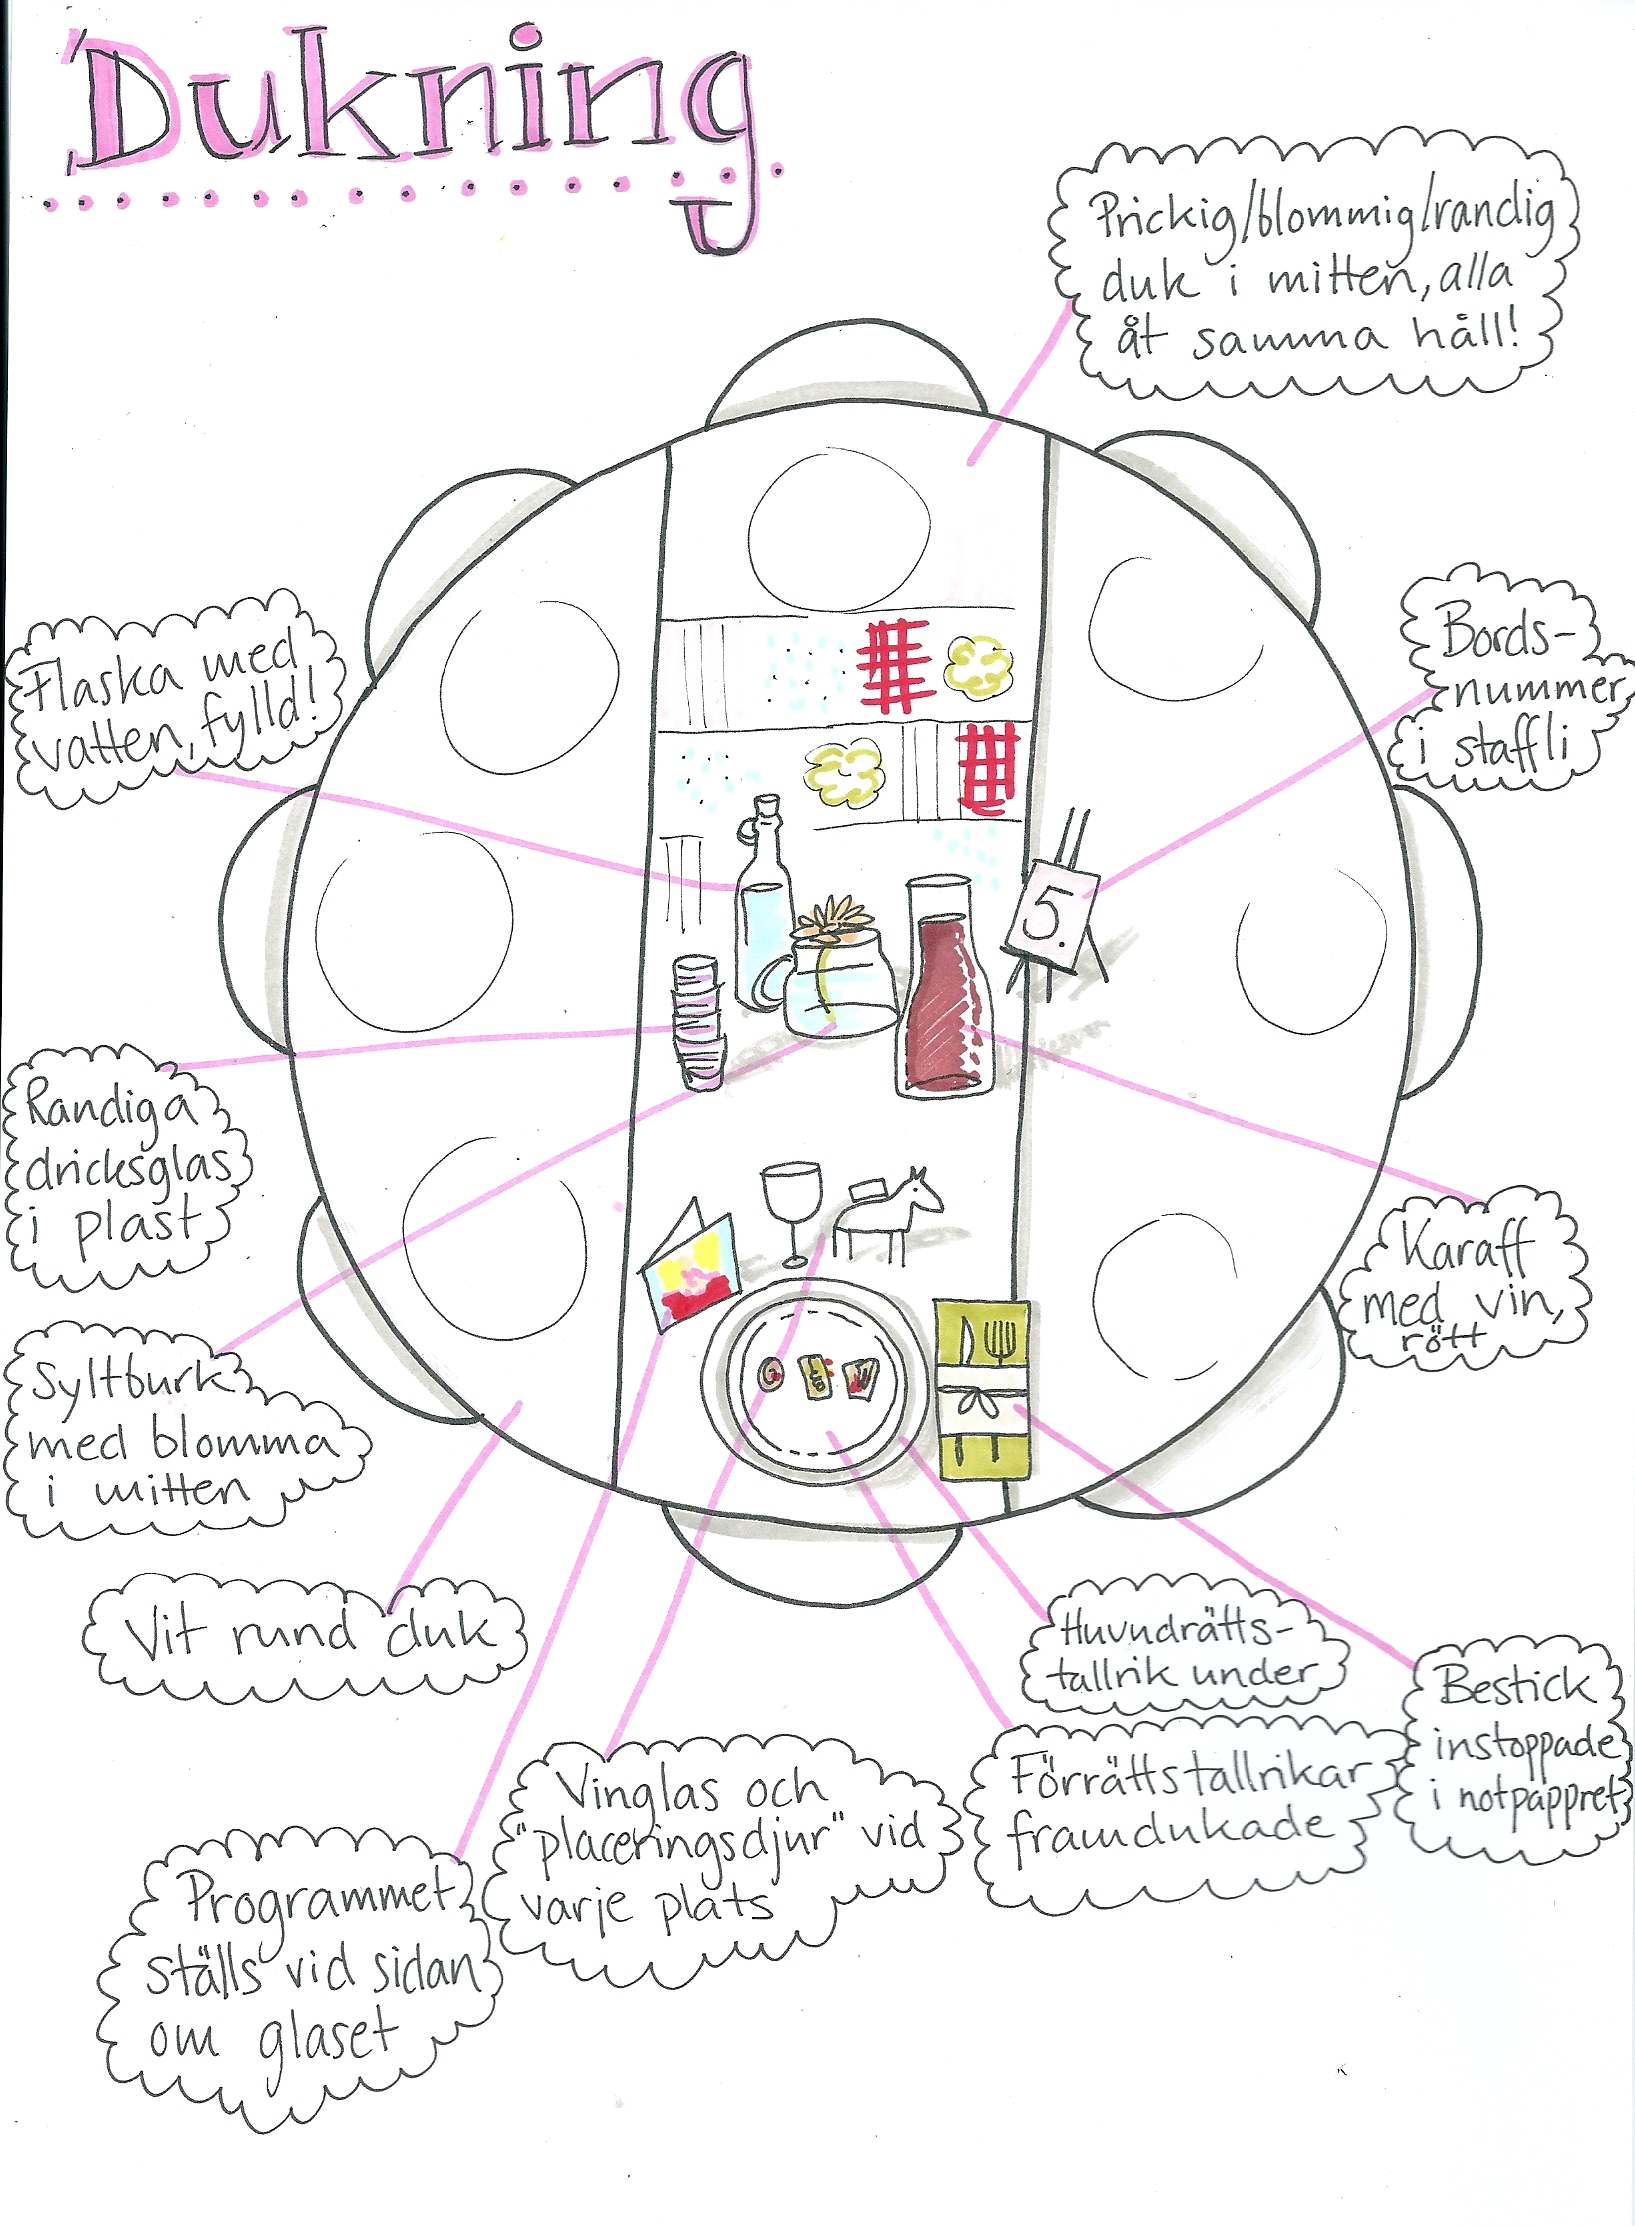 Dukning
Prickig/blommig/randig
duk i mitten, alla
åt samma håll!
Flaska med
vatten, fylld!
Bords-
nummer
i staffli
5.
Randiga
dricksglas
i plast
Karaff
med vin,
rött
Syltburk
med blomma
i mitten
Vit rund duk
Huvudrätts-
tallrik under
Bestick
instoppade
i notpappret
Förrättstallrikar
framdukade
Vinglas och
"placeringsdjur" vid
varje plats
Programmet
ställs vid sidan
om glaset